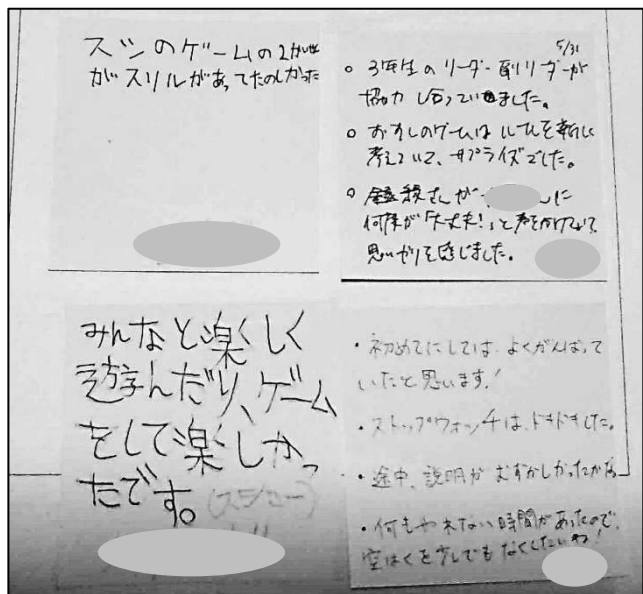 スシのゲームの2かい世
がスリルがあってたのしかった
5/31
○ 3年生のリーダー副リーダーが
協力し合っていました。
○ おすしのゲームはルールを新しく
考えていて、サプライズでした。
○ さんが んに
何度が「大丈夫!」と声をかけていて
思いやりを感じました。
みんなと楽しく
遊んだり、ゲーム
をして楽しかっ
たです。(スシロー)
・初めてにしては、よくがんばって
いたと思います!
・ストップウォッチは、ドキドキした。
・途中、説明がむずかしかったかな
・何もやれない時間があったので、
空はくを少しでもなくしたいね!